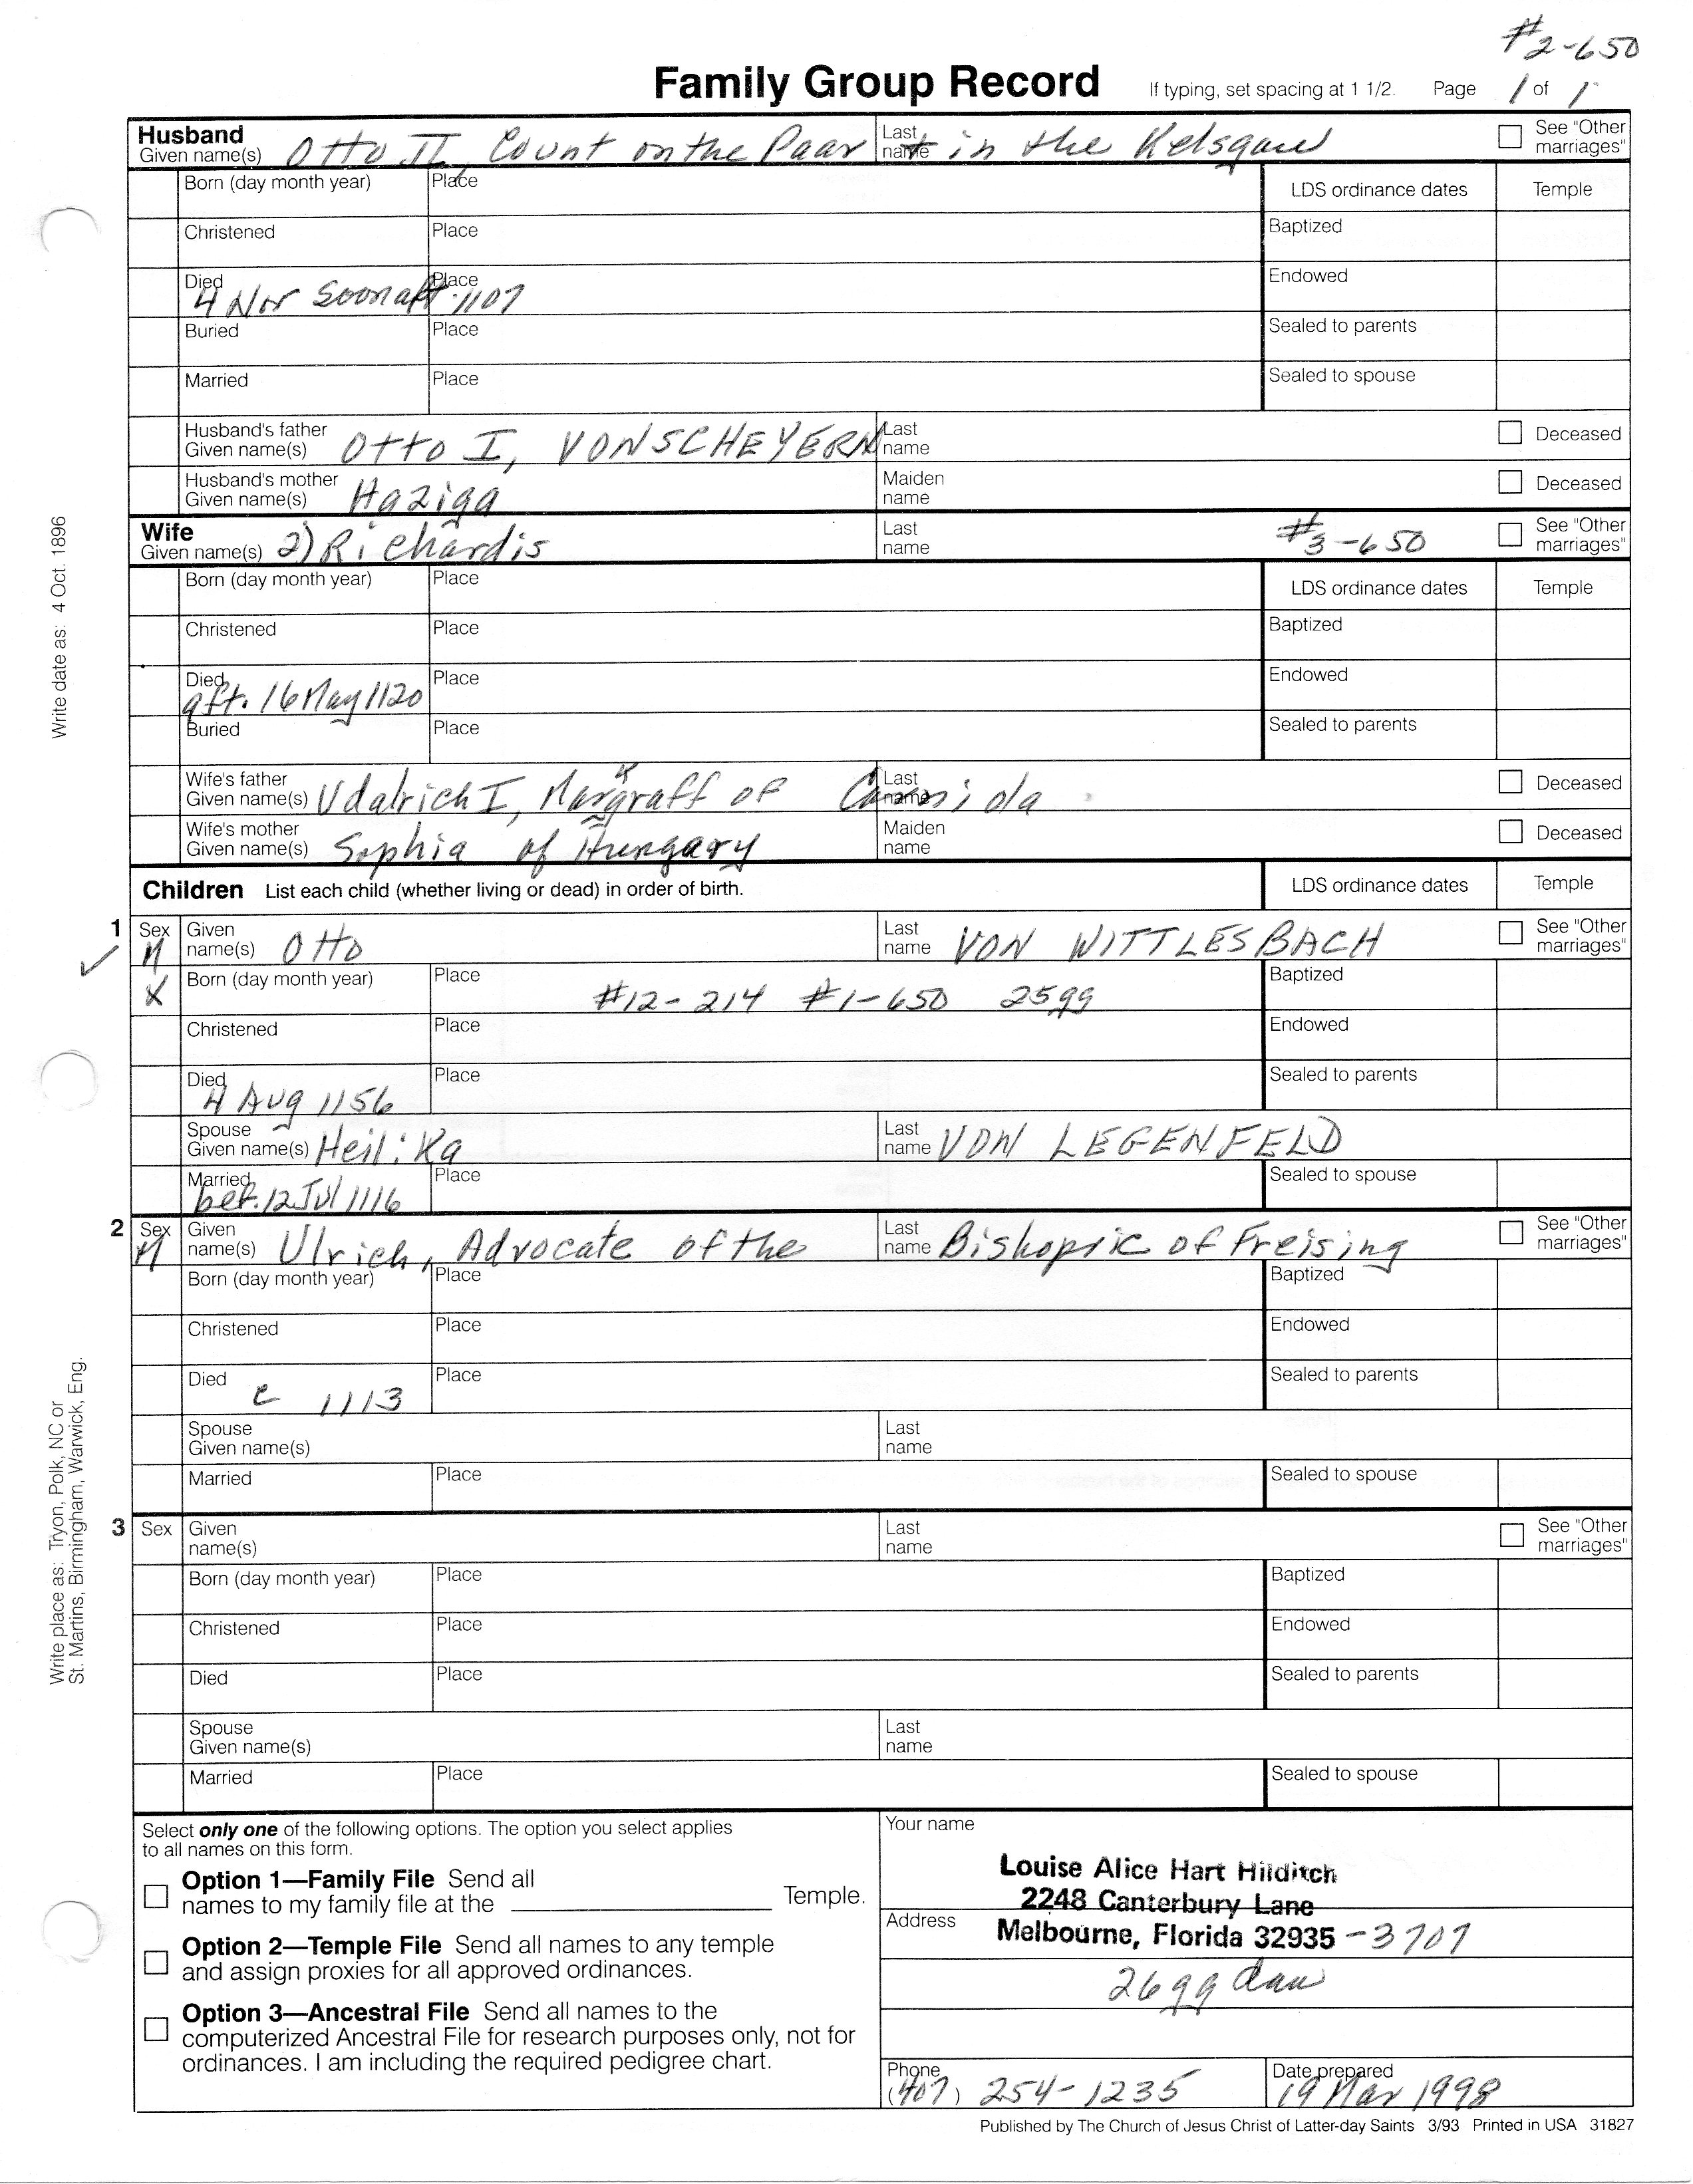 #2-650
Family Group Record If typing, set spacing at 1 1/2. Page 1 of 1
Husband
Given name(s) Otto II, Count on the Paar Last name + in the Kelsgau See "Other marriages"
Born (day month year) Place LDS ordinance dates Temple
Christened Place Baptized
Died 4 Nov soon aft. 1107 Place Endowed
Buried Place Sealed to parents
Married Place Sealed to spouse
Husband's father Given name(s) Otto I, VON SCHEYERN Last name Deceased
Husband's mother Given name(s) Haziga Maiden name Deceased
Wife
Given name(s) 2) Richardis Last name #3-650 See "Other marriages"
Born (day month year) Place LDS ordinance dates Temple
Christened Place Baptized
Died aft. 16 May 1120 Place Endowed
Buried Place Sealed to parents
Wife's father Given name(s) Udalrich I, Margraff of Last name Deceased
Wife's mother Given name(s) Sophia of Hungary Maiden name Deceased
Children List each child (whether living or dead) in order of birth. LDS ordinance dates Temple
1 Sex M Given name(s) Otto Last name VON WITTLESBACH See "Other marriages"
X Born (day month year) Place #12-214 #1-650 25gg Baptized
Christened Place Endowed
Died 4 Aug 1156 Place Sealed to parents
Spouse Given name(s) Heilika Last name VON LEGENFELD
Married bef. 12 Jul 1116 Place Sealed to spouse
2 Sex M Given name(s) Ulrich, Advocate of the Last name Bishopric of Freising See "Other marriages"
Born (day month year) Place Baptized
Christened Place Endowed
Died c 1113 Place Sealed to parents
Spouse Given name(s) Last name
Married Place Sealed to spouse
3 Sex Given name(s) Last name See "Other marriages"
Born (day month year) Place Baptized
Christened Place Endowed
Died Place Sealed to parents
Spouse Given name(s) Last name
Married Place Sealed to spouse
Write date as: 4 Oct. 1896
Write place as: Tryon, Polk, NC or
St. Martins, Birmingham, Warwick, Eng.
Select only one of the following options. The option you select applies
to all names on this form.
Option 1—Family File Send all
names to my family file at the Temple.
Option 2—Temple File Send all names to any temple
and assign proxies for all approved ordinances.
Option 3—Ancestral File Send all names to the
computerized Ancestral File for research purposes only, not for
ordinances. I am including the required pedigree chart.
Your name
Louise Alice Hart Hilditch
2248 Canterbury Lane
Address Melbourne, Florida 32935 -3707
26gg dau
Phone (407) 254-1235 Date prepared 19 Mar 1998
Published by The Church of Jesus Christ of Latter-day Saints 3/93 Printed in USA 31827